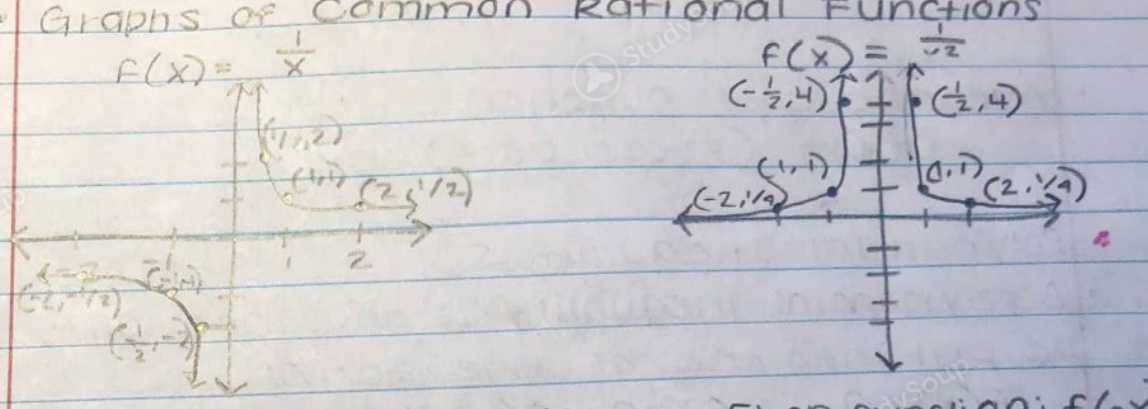 Graphs of Common Rational Functions
f(x) = 1/x
(1,1)
(2, 1/2)
1 2
-1
(-2, -1/2)
(1/2, -2)
f(x) =
(-1/2, 4) (1/2, 4)
(1, 1) (1, 1)
(-2, 1/4) (2, 1/4)
Study